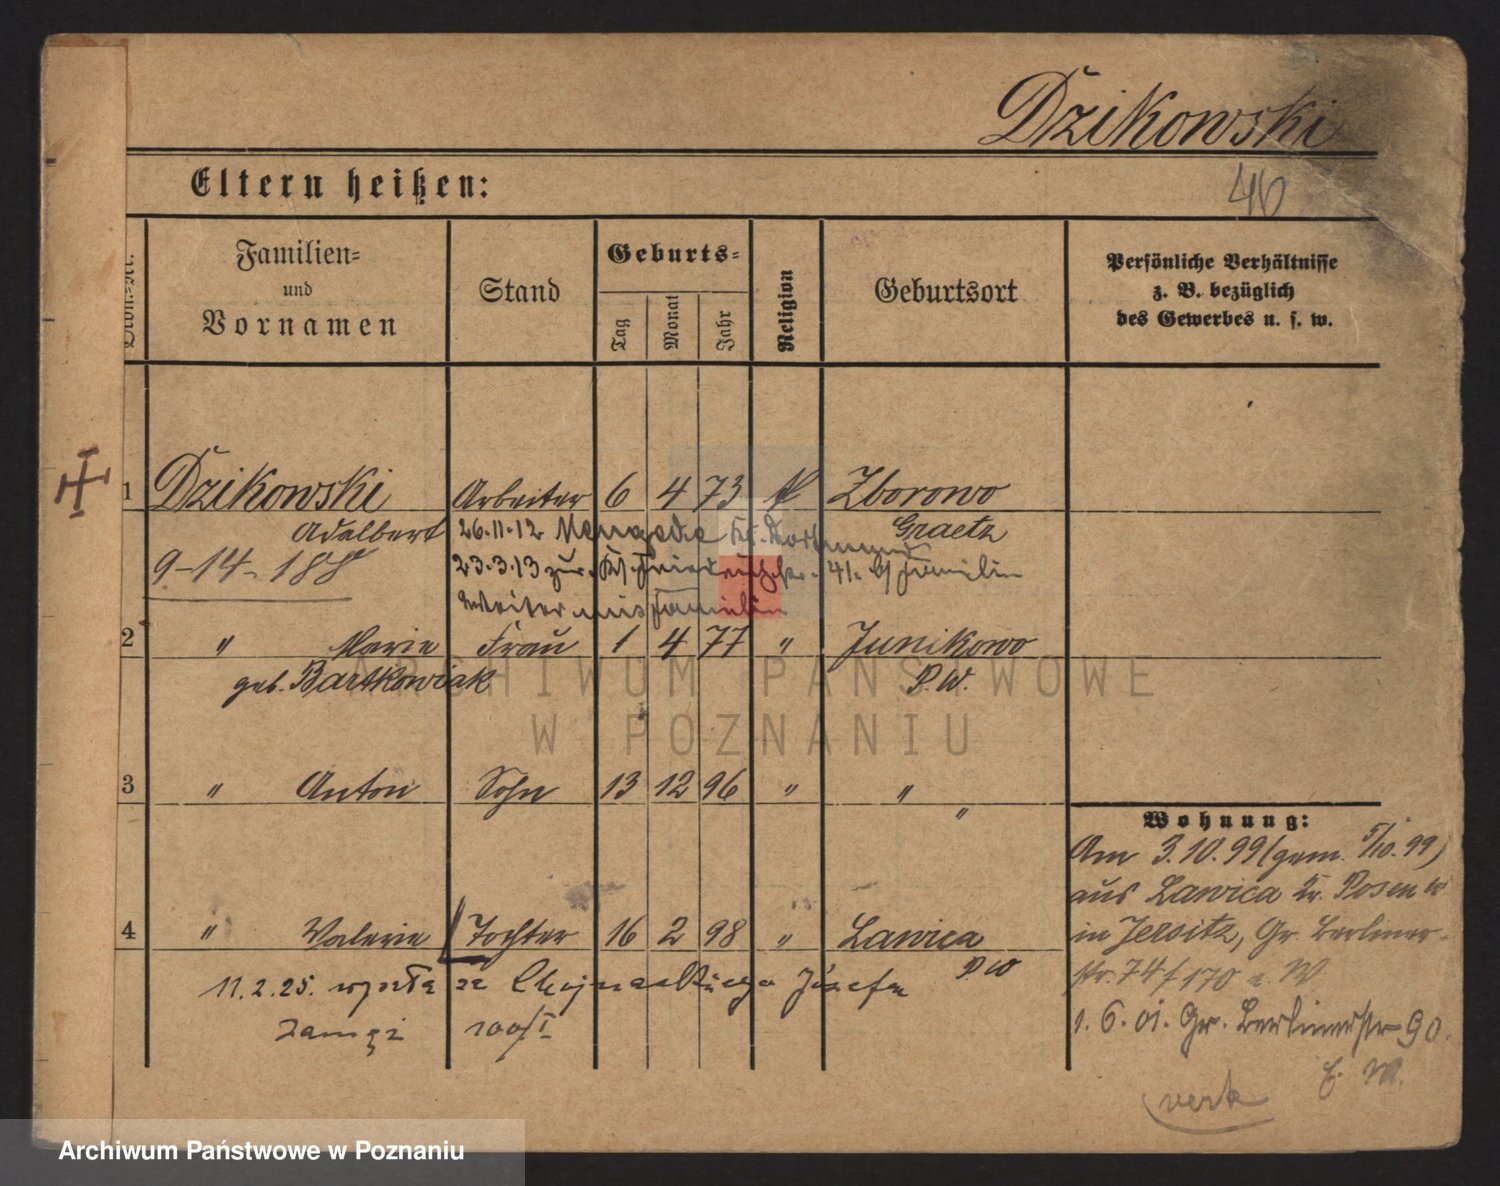 Dzikowski
46
Eltern heißen:
Familien= und Vornamen
Stand
Geburts=
Tag Monat Jahr
Religion
Geburtsort
Persönliche Verhältnisse
z. B. bezüglich
des Gewerbes u. s. w.
1 Dzikowski Arbeiter 6 4 73 k Zborowo
Adalbert 26.11.12 Mengede Kr. Dortmund Graetz
9-14-188 23.3.13 zur. Familie
Arbeiter Familie
2 " Marie Frau 1 4 77 " Junikowo
geb. Bartkowiak P.W.
3 " Anton Sohn 13 12 96 " "
"
4 " Valerie Tochter 16 2 98 " Lawica
P W
11.2.25. wyszła za Chojnackiego Józefa
100/I
Wohnung:
Am 3.10.99 (gem. 5/10.99)
aus Lawica Kr. Posen W
in Jersitz, Gr. Berliner-
str. 74
1.6.01. Gr. Berlinerstr 90.
verk
ARCHIWUM PAŃSTWOWE
W POZNANIU
Archiwum Państwowe w Poznaniu